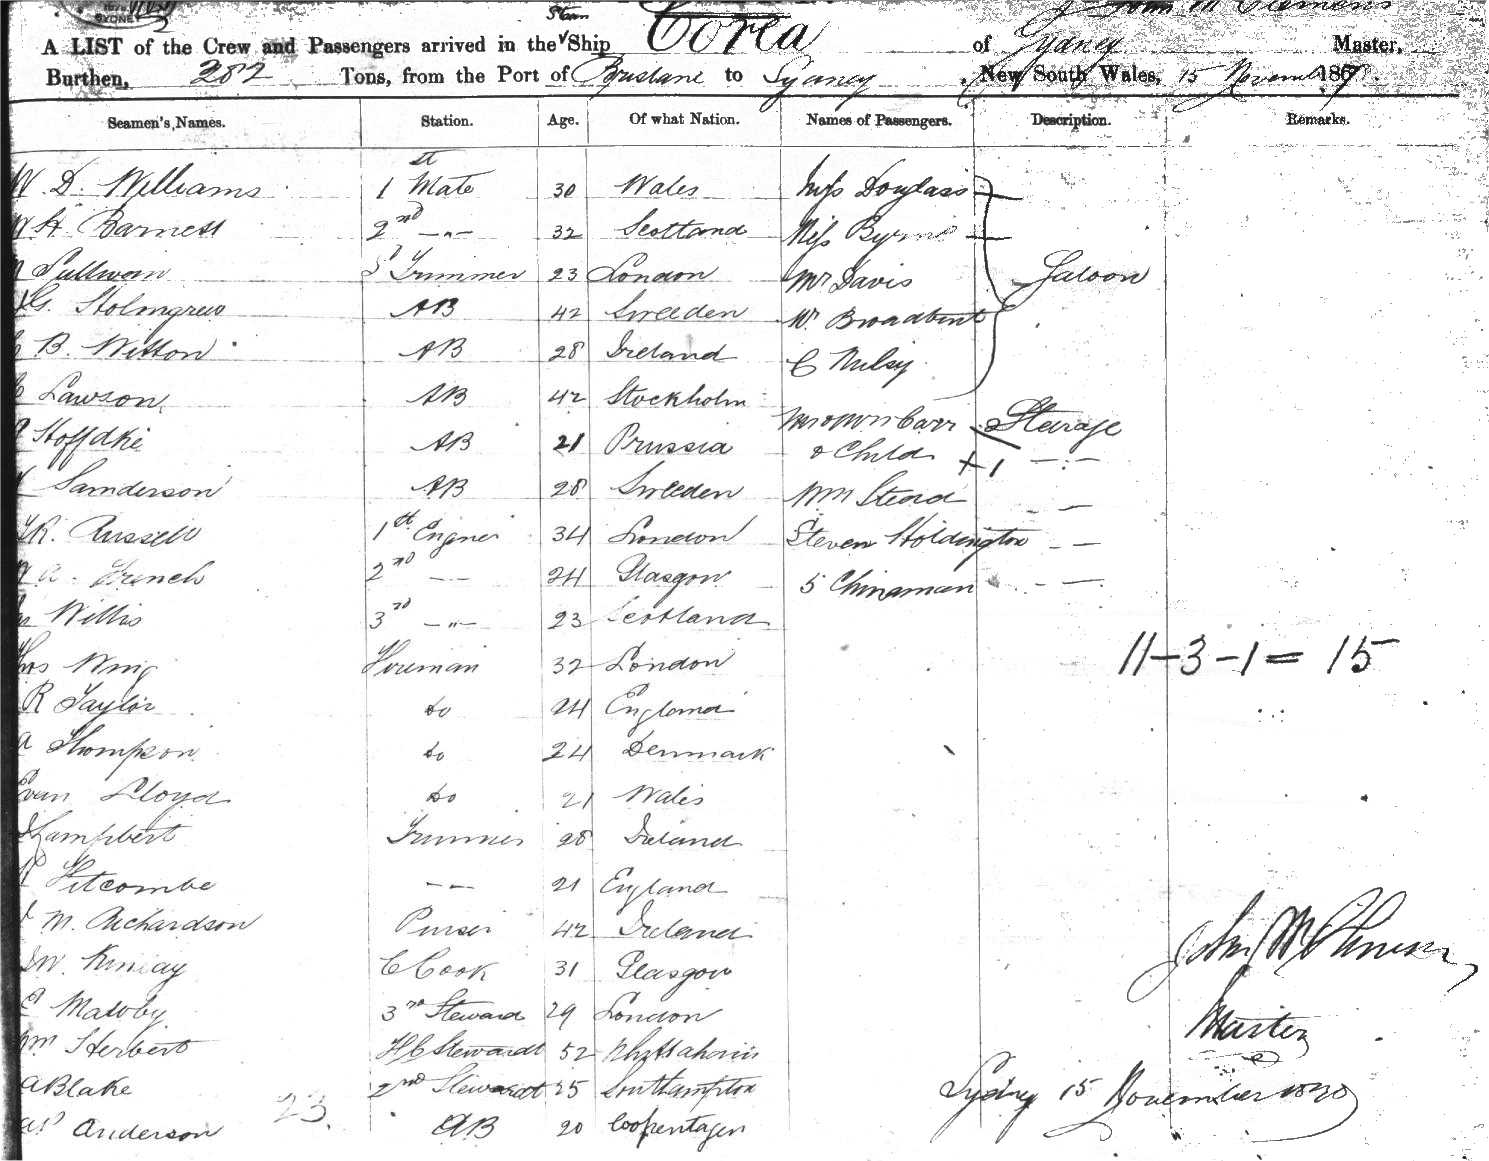 SYDNEY
John McClemens
A LIST of the Crew and Passengers arrived in the Steam Ship Corea of Sydney Master,
Burthen, 282 Tons, from the Port of Brisbane to Sydney, New South Wales, 15 November 187
Seamen's Names. Station. Age. Of what Nation. Names of Passengers. Description. Remarks.
W. D. Williams 1st Mate 30 Wales Miss Douglass
W H Barnett 2nd —"— 32 Scotland Miss Byrne
Sullivan Trimmer 23 London Mr Davis Saloon
G. Holmgren AB 42 Sweeden Mr Broadbent
B. Witton AB 28 Ireland C
Lawson AB 42 Stockholm
Mr & Mrs Carr Stearage
Hoffdke AB 21 Prussia & Child +1 — " —
Sanderson AB 28 Sweeden Wm Stead — —
R. Russell 1st Enginer 34 London Steven Holdington — —
A. French 2nd — — 24 Glasgow 5 Chinaman — —
Willis 3rd —"— 23 Scotland
Thos Wing Fireman 32 London 11-3-1=15
R Taylor do 24 England
A Thompson do 24 Denmark
Evan Lloyd do 21 Wales
Lampbert Trimmer 28 Ireland
Fitcombe — — 21 England
M. Richardson Purser 42 Ireland
W. Kinlay C Cook 31 Glasgow John McClemens,
C Maloby 3rd Steward 29 London Master
Wm Herbert H C Stewardt 52
A Blake 2nd Stewardt 25 Southampton Sydney 15 November 1878
Anderson AB 20 Coopentagen
23.